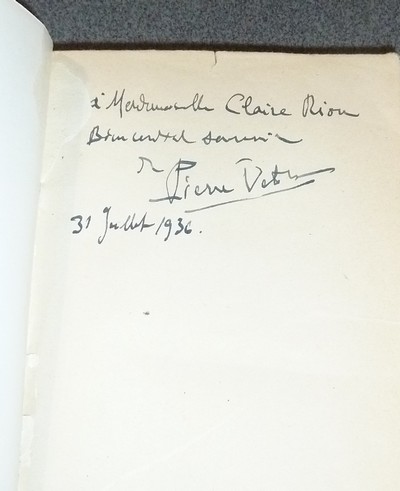 à Mademoiselle Claire Riou
Bien cordial souvenir
de
Pierre Veber
31 Juillet 1936.